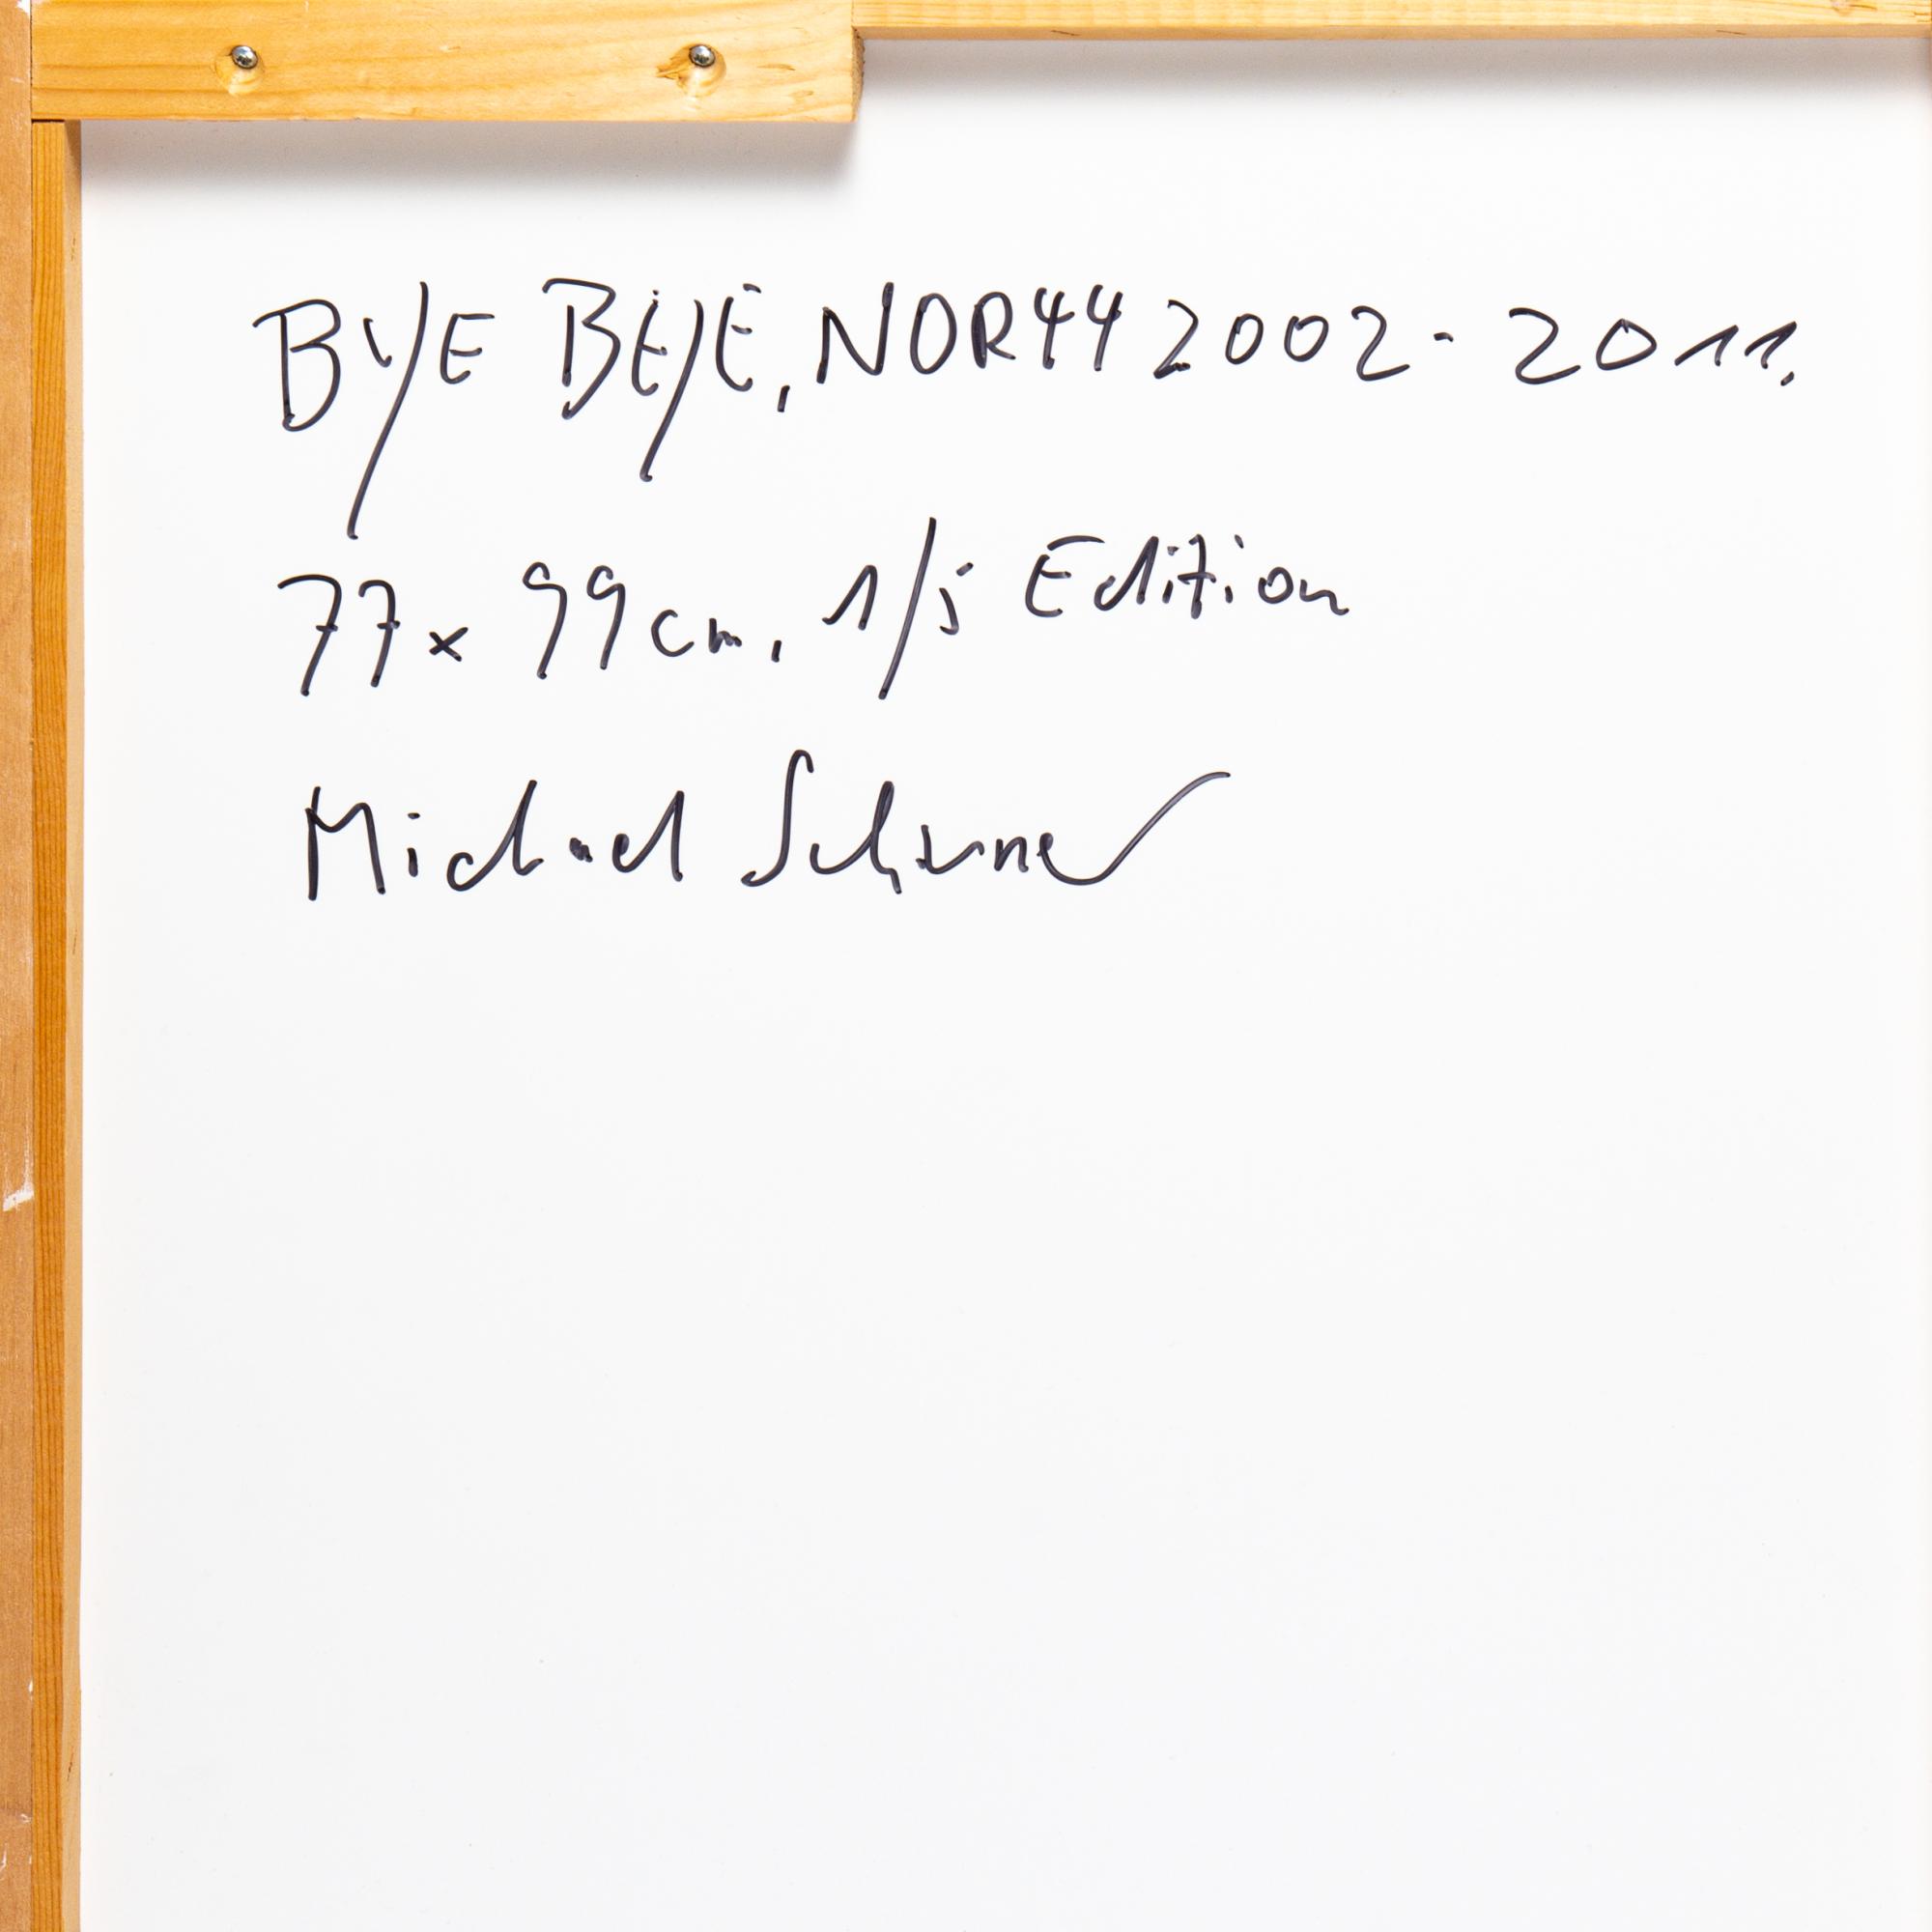 BYE BYE, NOR44 2002-2011.
77x99cm, 1/5 Edition
Michael Schirner